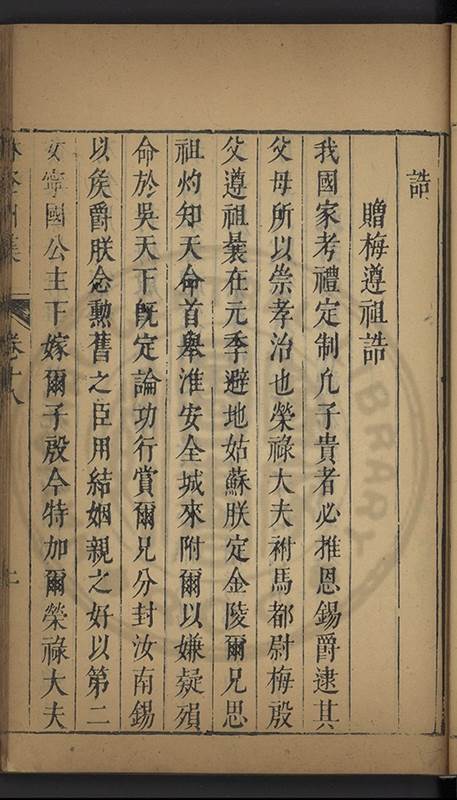 誥
贈梅遵祖誥
我國家考禮定制凡子貴者必推恩錫爵逮其
父母所以崇孝治也榮祿大夫祔馬都尉梅殷
父遵祖曩在元季避地姑蘇朕定金陵爾兄思
祖灼知天命首舉淮安全城來附爾以嫌疑殞
命於吳天下旣定論功行賞爾兄分封汝南錫
以矦爵朕念勲舊之臣用結姻親之好以第二
女寧國公主下嫁爾子殷今特加爾榮祿大夫
卷十八